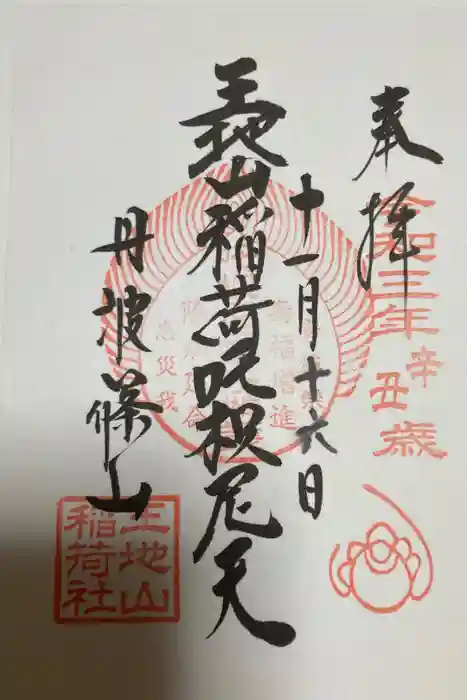 奉拝
令和三年
辛丑歳
十一月十六日
王地山稲荷吒枳尼天
丹波篠山
王地山
稲荷社